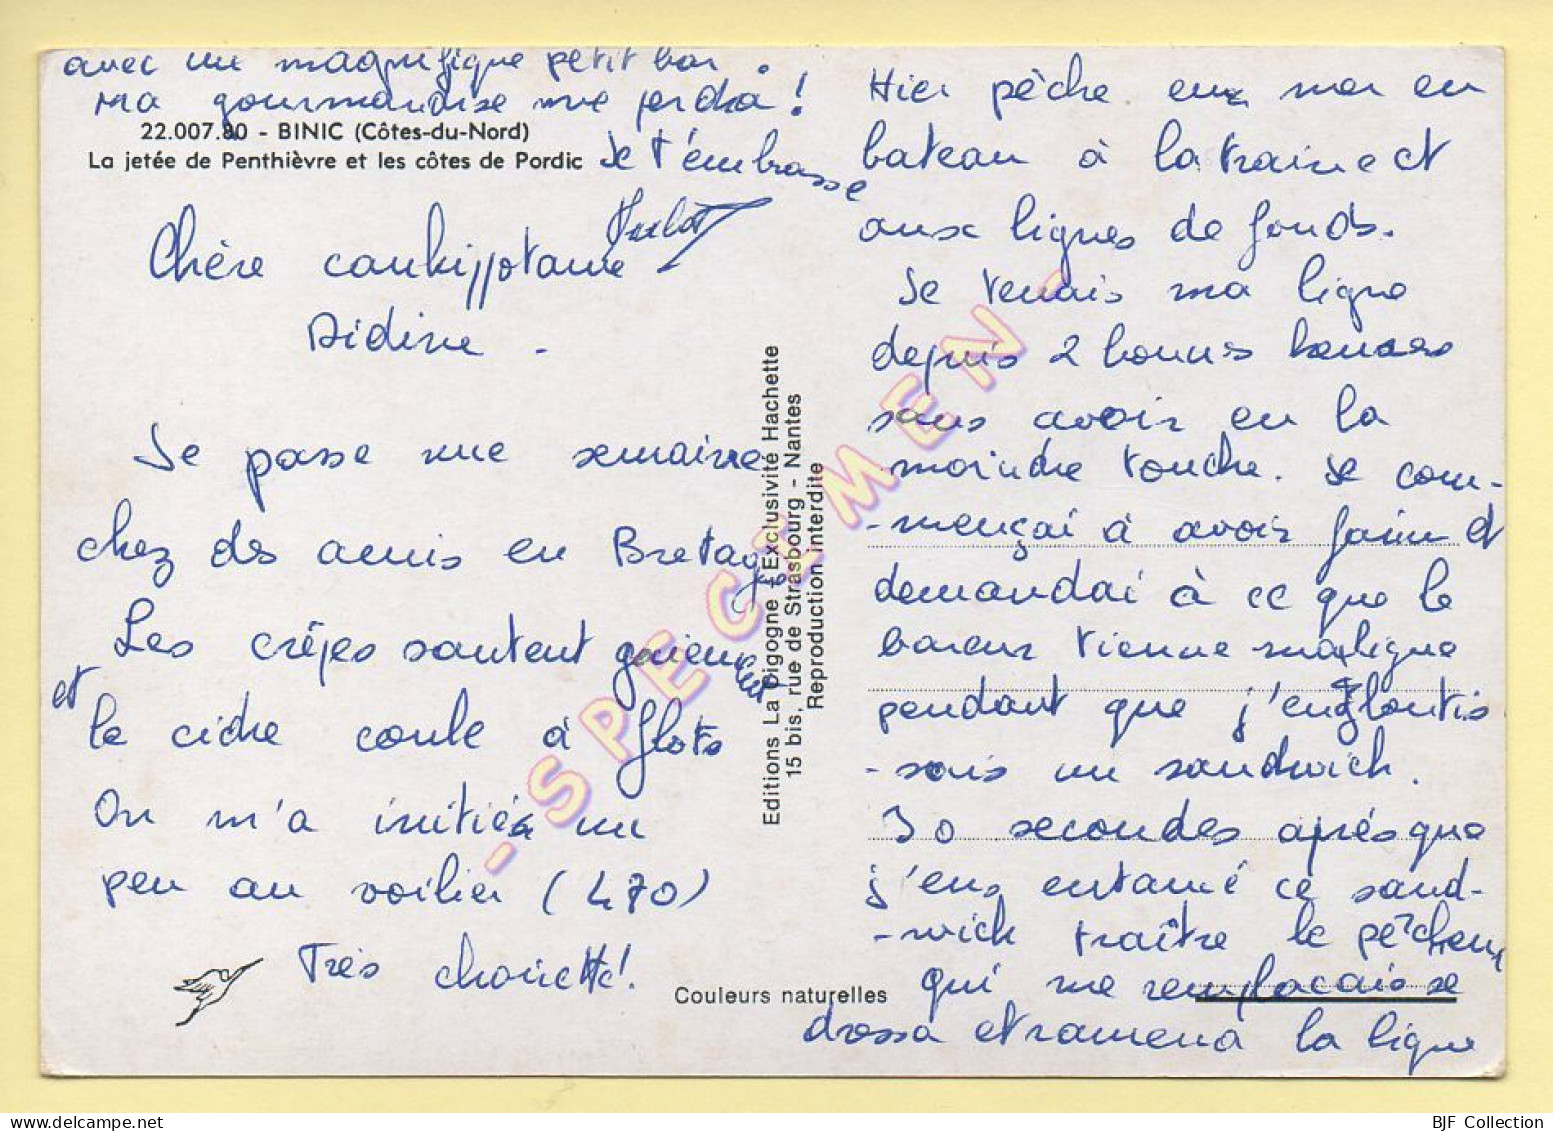 avec un magnifique petit bar.
Ma gourmandise me perdra !
22.007.80 - BINIC (Côtes-du-Nord)
La jetée de Penthièvre et les côtes de Pordic
Je t'embrasse
Chère
Didine -
Je passe une semaine
chez des amis en Bretagne
Les crêpes sautent gaiement
et
le cidre coule à flots
On m'a initiée un
peu au voilier (470)
Très chouette !
Hier pêche en mer en
bateau à la traine et
aux lignes de fonds.
Je tenais ma ligne
depuis 2 bonnes heures
sans avoir eu la
moindre touche. Je com-
-mençai à avoir faim et
demandai à ce que le
bareur tienne ma ligne
pendant que j'engloutis
-sais un sandwich.
30 secondes après que
j'eus entamé ce sand-
-wich traître le pêcheur
qui me remplacais se
dressa et ramena la ligne
Editions La Digogne - Exclusivité Hachette
15 bis, rue de Strasbourg - Nantes
Reproduction interdite
Couleurs naturelles
- SPECIMEN -
BJF Collection